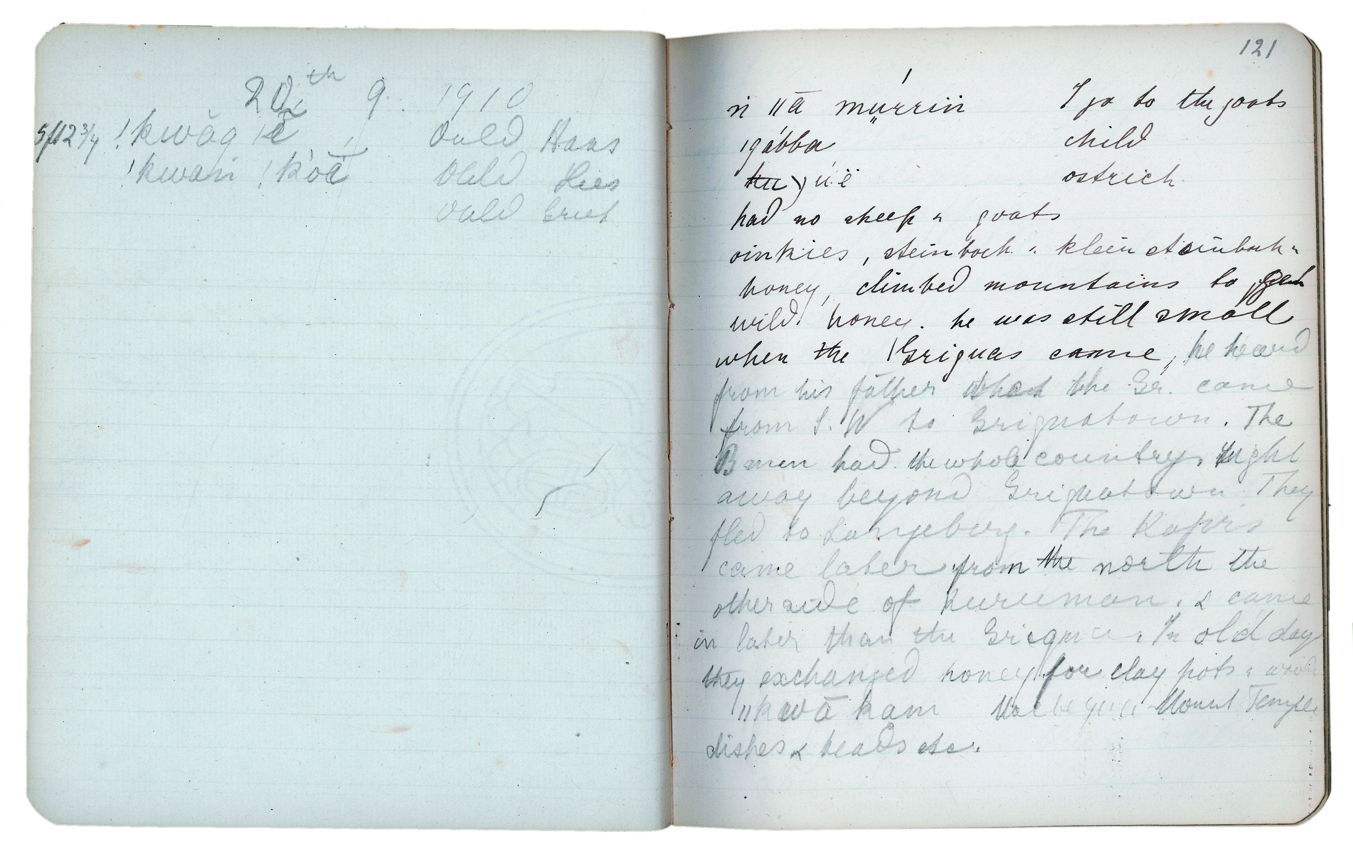 20th 9 1910
5ft2 3/4 !kwāg |ē Ould Haas
!kwain !k'oā Ould Hies
Ould Griet
121
ń ǁā mụrrin I go to the goats
|gábba child
ostrich
had no sheep & goats
oinkies, steinbock & klein steinbock &
honey, climbed mountains to get
wild honey. he was still small
when the Griquas came, he heard
from his father the Gr. came
from S. W to Griquatown. The
B men had the whole country, right
away beyond Griquatown They
fled to Langeberg. The Kafirs
came later from the north the
other side of Kuruman. & came
in later than the Griqua. In old day
they exchanged honey for clay pots &
ǁkwā kam Mount Temple
dishes & beads etc.